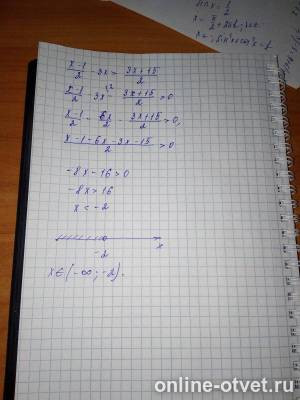 sin x = 1/2
(x-1)/2 - 3x > (3x+15)/2
(x-1)/2 - 3x^(\2) - (3x+15)/2 > 0
(x-1)/2 - 6x/2 - (3x+15)/2 > 0,
(x-1-6x-3x-15)/2 > 0
-8x-16>0
-8x>16
x<-2
-2 x
x∈(-∞;-2).
online-otvet.ru